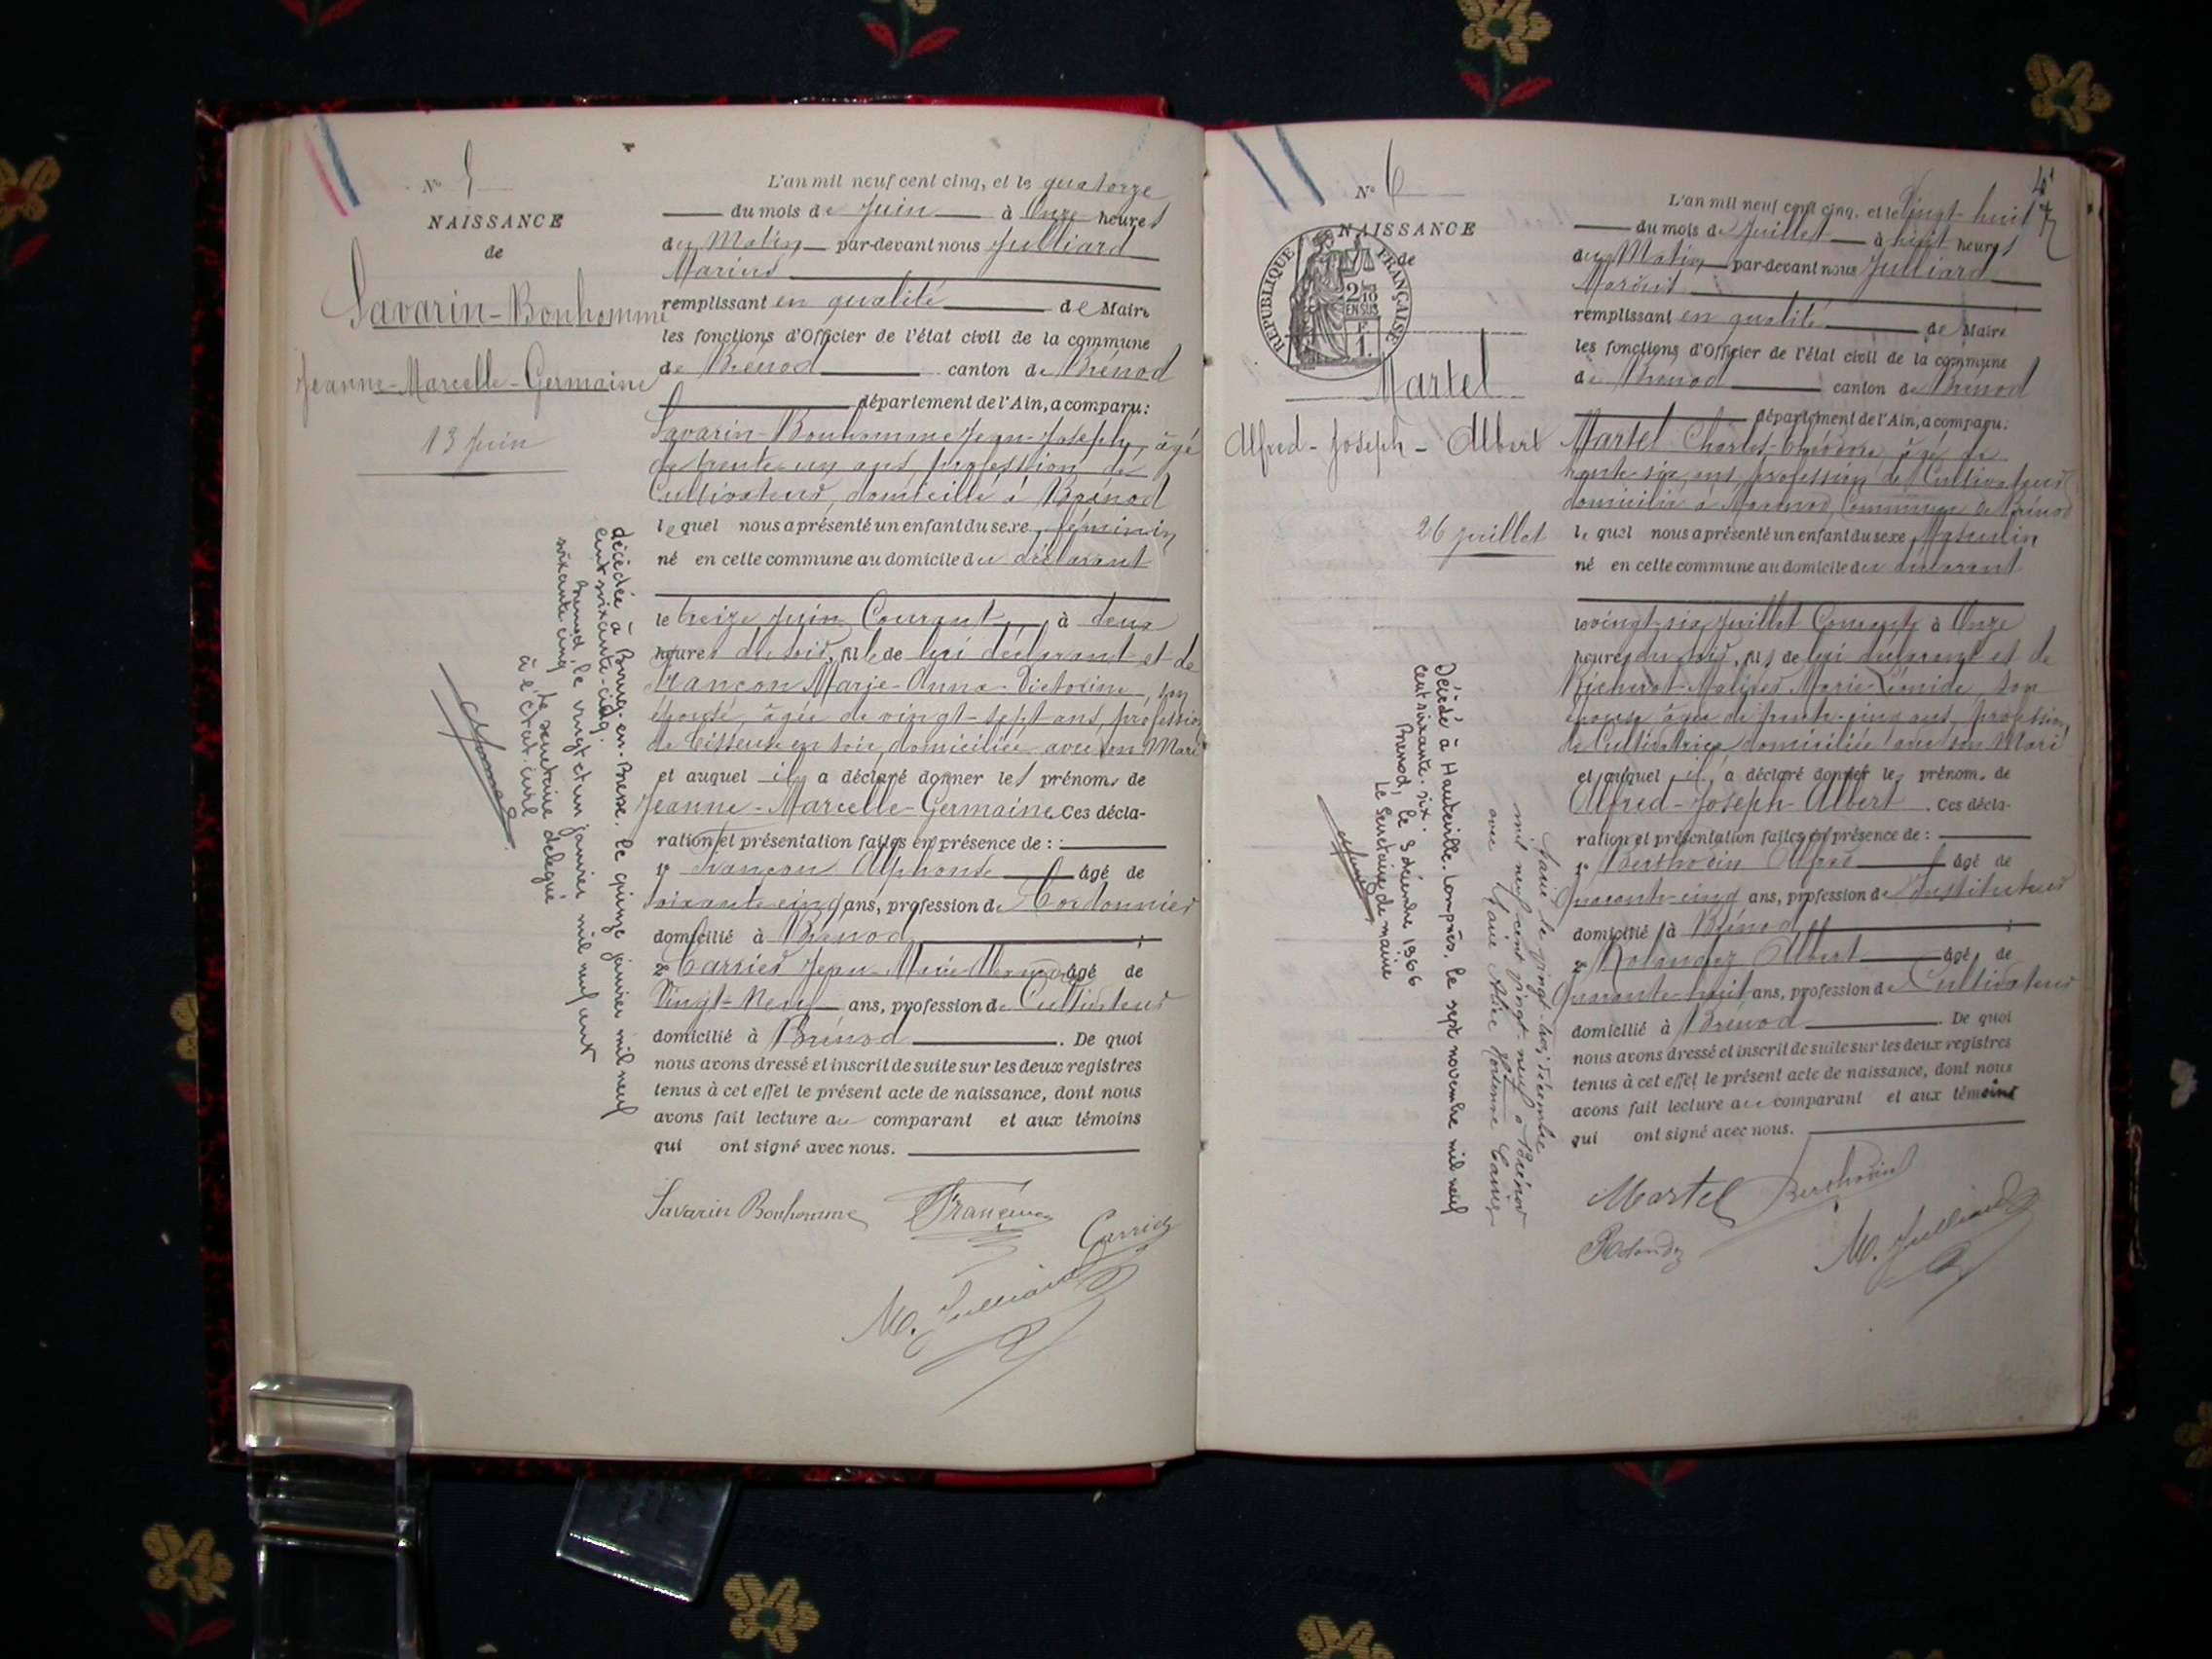 N° 5
NAISSANCE
de
Savarin-Bonhomme
Jeanne-Marcelle-Germaine
13 juin
L'an mil neuf cent cinq, et le quatorze
du mois de Juin à Onze heures
du Matin par-devant nous Julliard
Marius
remplissant en qualité de Maire
les fonctions d'Officier de l'état civil de la commune
de Brénod canton de Brénod
département de l'Ain, a comparu:
Savarin-Bonhomme Jean-Joseph, âgé
de trente-un ans, profession de
Cultivateur, domicilié à Brénod
lequel nous a présenté un enfant du sexe féminin
né en cette commune au domicile du déclarant
le treize Juin Courant, à deux
heures du soir, fille de lui déclarant et de
Françon Marie-Anna-Victorine, son
épouse, âgée de vingt-sept ans, profession
de Tisseuse en soie, domiciliée avec son Mari
et auquel il a déclaré donner les prénoms de
Jeanne-Marcelle-Germaine Ces décla-
ration et présentation faites en présence de :
1° Françon Alphonse âgé de
soixante-cinq ans, profession de Cordonnier
domicilié à Brénod ;
2° Carrier Jean-Marie âgé de
Vingt-Neuf ans, profession de Cultivateur
domicilié à Brénod. De quoi
nous avons dressé et inscrit de suite sur les deux registres
tenus à cet effet le présent acte de naissance, dont nous
avons fait lecture au comparant et aux témoins
qui ont signé avec nous.
Savarin Bonhomme Françon
Carrier
M. Julliard
décédée à Bourg-en-Bresse, le quinze janvier mil neuf
cent soixante-cinq.
Brénod, le vingt et un janvier mil neuf cent
soixante cinq
Le secrétaire délégué
à l'état-civil
N° 6
NAISSANCE
de
RÉPUBLIQUE FRANÇAISE
2/10
EN SUS
1 F.
Martel
Alfred-Joseph-Albert
26 juillet
47
L'an mil neuf cent cinq, et le Vingt-huit
du mois de Juillet à huit heures
du Matin par-devant nous Julliard
Marius
remplissant en qualité de Maire
les fonctions d'Officier de l'état civil de la commune
de Brénod canton de Brénod
département de l'Ain, a comparu:
Martel Charles âgé de
trente-six ans, profession de Cultivateur
domicilié à Commune de Brénod
lequel nous a présenté un enfant du sexe Masculin
né en cette commune au domicile du déclarant
le vingt-six Juillet Courant, à Onze
heures du soir, fils de lui déclarant et de
Marie-Léonide, son
épouse âgée de trente-cinq ans, profession
de Cultivatrice domiciliée avec son Mari
et auquel il a déclaré donner les prénoms de
Alfred-Joseph-Albert. Ces décla-
ration et présentation faites en présence de :
1° Berthouin Alfred âgé de
Quarante-cinq ans, profession de Instituteur
domicilié à Brénod ;
2° Rolandez Albert âgé de
Quarante-huit ans, profession de Cultivateur
domicilié à Brénod. De quoi
nous avons dressé et inscrit de suite sur les deux registres
tenus à cet effet le présent acte de naissance, dont nous
avons fait lecture au comparant et aux témoins
qui ont signé avec nous.
Martel Berthouin
Rolandez
M. Julliard
Marié le vingt-trois décembre
mil neuf cent vingt-neuf à Brénod
avec Marie Alice Carrier
Décédé à Hauteville-Lompnes, le sept novembre mil neuf
cent soixante-six.
Brénod, le 3 décembre 1966
Le Secrétaire de mairie